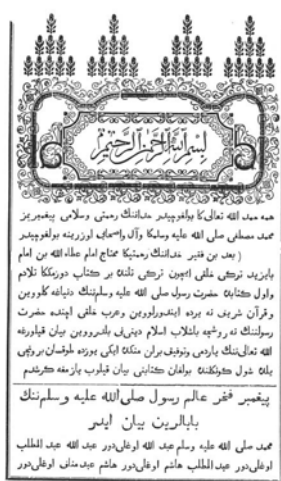 بسم الله الرحمن الرحيم
همه حمد الله تعالى‌كا بولغوچيدر خداننك رحمتى وسلامى پيغمبريز
محمد مصطفى صلى الله عليه وسلم‌كا وآل واصحابى اوزرينه بولغوچيدر
( بعد بن فقير خداننك رحمتيكا محتاج امام عطاء الله بن امام
بايزيد تركى خلقى ايچون تركى تلنك بر كتاب دوزمككا تلادم
واول كتابك حضرت رسول صلى الله عليه وسلم‌ننك دنياغه كلووين
وقرآن شريف نه يرده ايندورلووين وعرب خلقى ايچنده حضرت
رسولننك نه روشچه باشلاب اسلام دينى‌نى بلدرووين بيان قيلورغه
الله تعالى‌ننك ياردمى وتوفيقى برلن منك ايكى يوزده طوقسان برنچى
يلك شول كوكلمك بولغان كتابنى بيان قيلوب يازمغه كرشدم
پيغمبر فخر عالم رسول صلى الله عليه وسلم‌ننك
بابالرين بيان ايدر
محمد صلى الله عليه وسلم عبد الله اوغلى‌دور عبد الله عبد المطلب
اوغلى‌دور عبد المطلب هاشم اوغلى‌دور هاشم عبد مناف اوغلى‌دور